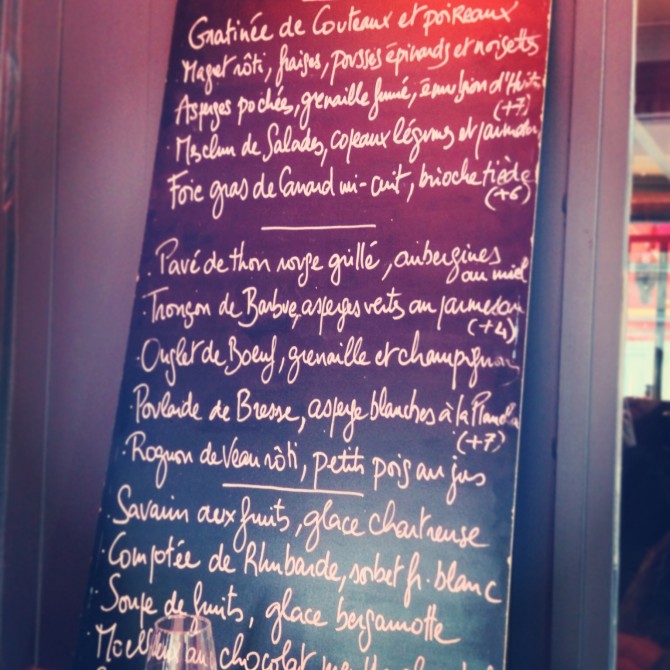 Gratinée de Couteaux et poireaux
Magret rôti, fraises, pousses épinards et noisettes
Asperges pochées, grenaille fumé, émulsion d'Huitre
(+7)
Mesclun de Salades, copeaux légumes et parmesan
Foie gras de Canard mi-cuit, brioche tiède
(+6)
Pavé de thon rouge grillé, aubergines
au miel
Tronçon de Barbue, asperges verts au parmesan
(+4)
Onglet de Boeuf, grenaille et champignons
Poularde de Bresse, asperge blanches à la
(+7)
Rognon de Veau rôti, petits pois au jus
Savarin aux fruits, glace chartreuse
Compotée de Rhubarbe, sorbet fr. blanc
Soupe de fruits, glace bergamotte
Moelleux au chocolat